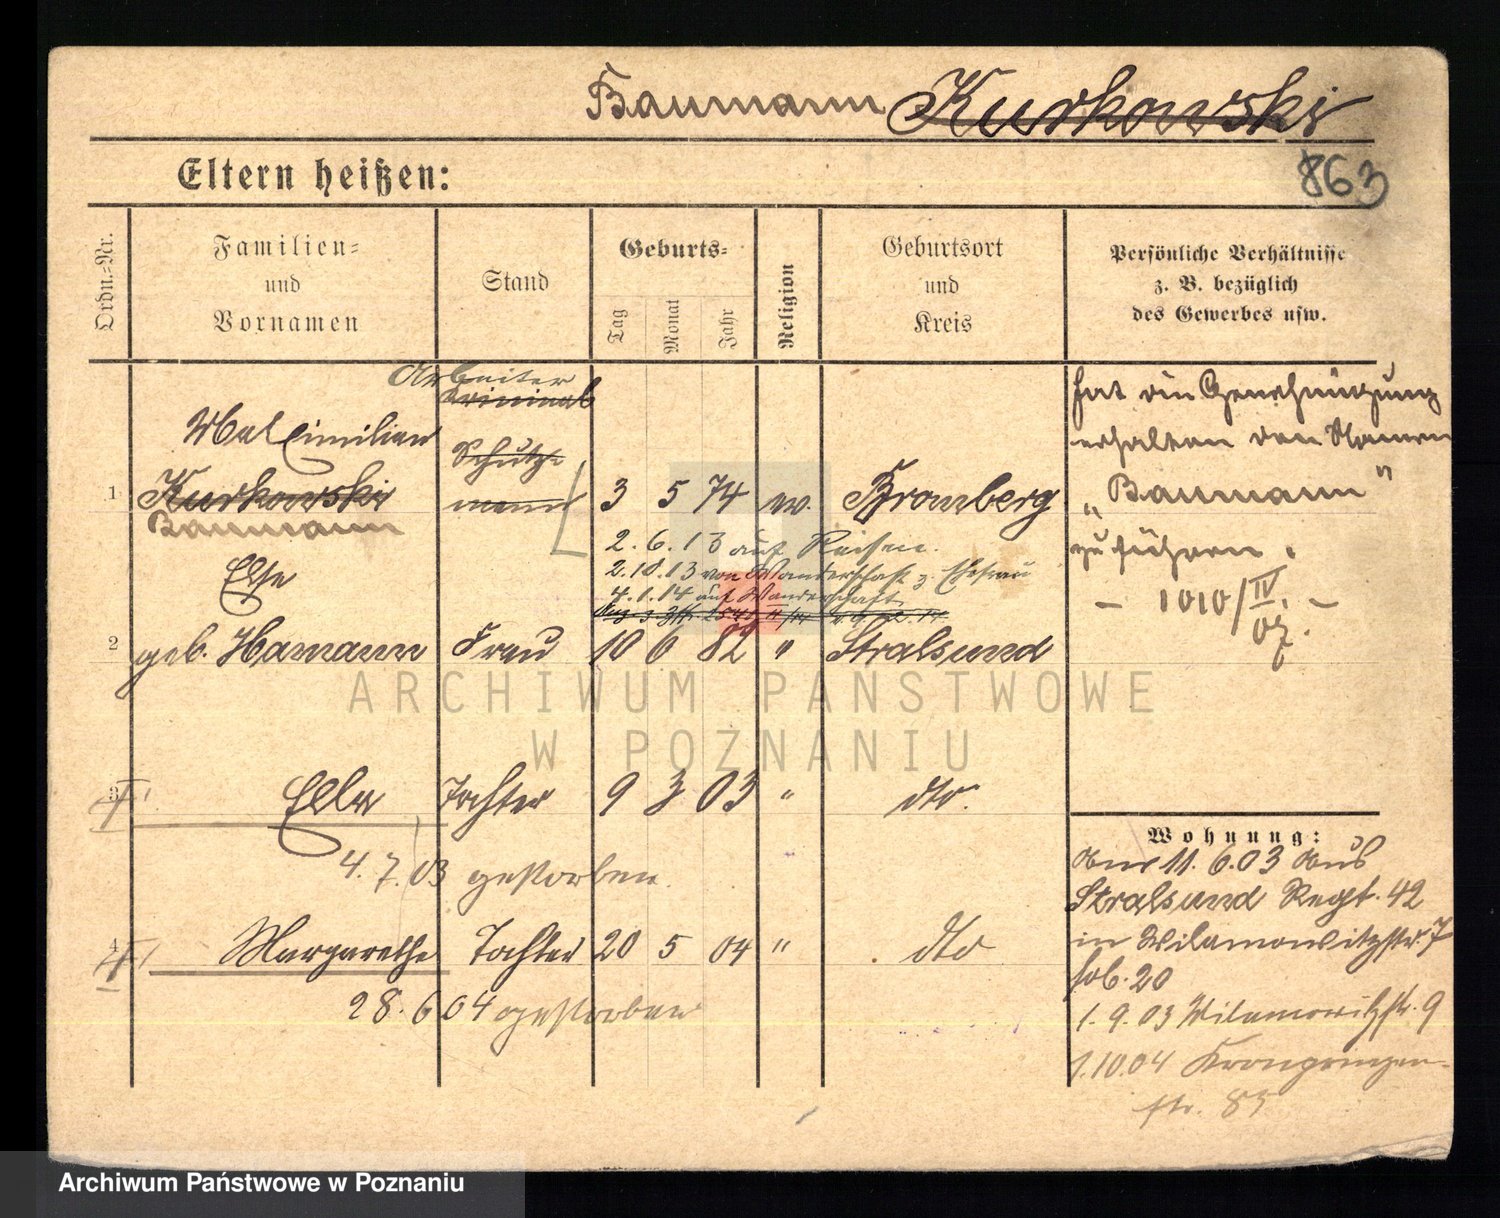 Baumann Kurkowski
863
Eltern heißen:
Ordn.=Nr.
Familien=
und
Vornamen
Stand
Geburts=
Tag
Monat
Jahr
Religion
Geburtsort
und
Kreis
Persönliche Verhältnisse
z. B. bezüglich
des Gewerbes usw.
Arbeiter
Kriminal
Schutz-
mann
1
Maximilian
Kurkowski
Baumann
3 5 74 ev. Bromberg
2.6.13 auf Reisen.
2.10.13 von Wanderschaft z. Ehefrau
4.1.14 auf Wanderschaft
2
Else
geb. Hamann Frau 10 6 82 " Stralsund
3
Ella Tochter 9 3 03 " dto.
4.7.03 gestorben.
4
Margarethe Tochter 20 5 04 " dto
28.6 04 gestorben
hat die Genehmigung
erhalten den Namen
„Baumann"
zu führen.
- 1010/IV. -
07.
Wohnung:
Am 11.6.03 aus
Stralsund Regt. 42
in Wilamowitzstr. 7
1.9.03 Wilamowitzstr. 9
1.10.04 Kronprinzen-
str. 85
ARCHIWUM PAŃSTWOWE
W POZNANIU
Archiwum Państwowe w Poznaniu